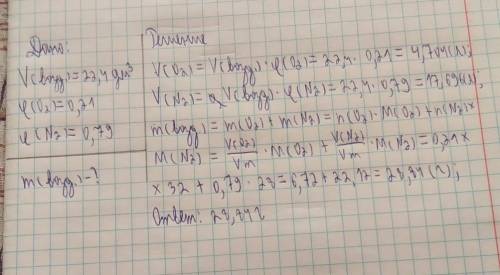 Дано:
V(возд)=22,4 дм³
φ(O₂)=0,21
φ(N₂)=0,79
m(возд)-?
Решение
V(O₂)=V(возд)·φ(O₂)=22,4·0,21=4,704(л);
V(N₂)=V(возд)·φ(N₂)=22,4·0,79=17,696(л);
m(возд)=m(O₂)+m(N₂)=n(O₂)·M(O₂)+n(N₂)×
M(N₂)=V(O₂)/Vm·M(O₂)+V(N₂)/Vm·M(N₂)=0,21×
×32+0,79·28=6,72+22,12=28,84(г);
Ответ: 28,84г